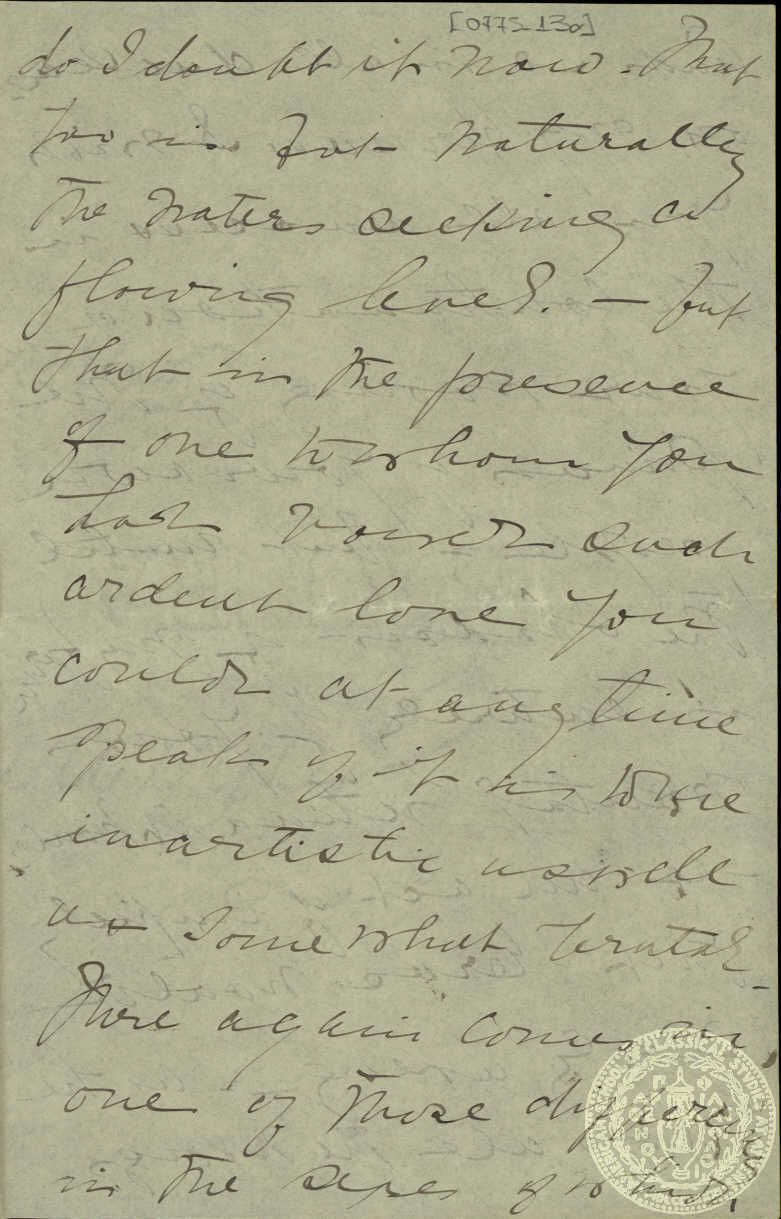 [0775-130]
do I doubt it now. That
too is but naturally
the waters seeking a
flowing level. — but
that in the presence
of one to whom you
had vowed such
ardent love you
could at any time
speak of it is to me
inartistic as well
as somewhat brutal.
There again comes in,
one of those differences
in the sexes of which,
AMERICAN SCHOOL OF CLASSICAL STUDIES AT ATHENS